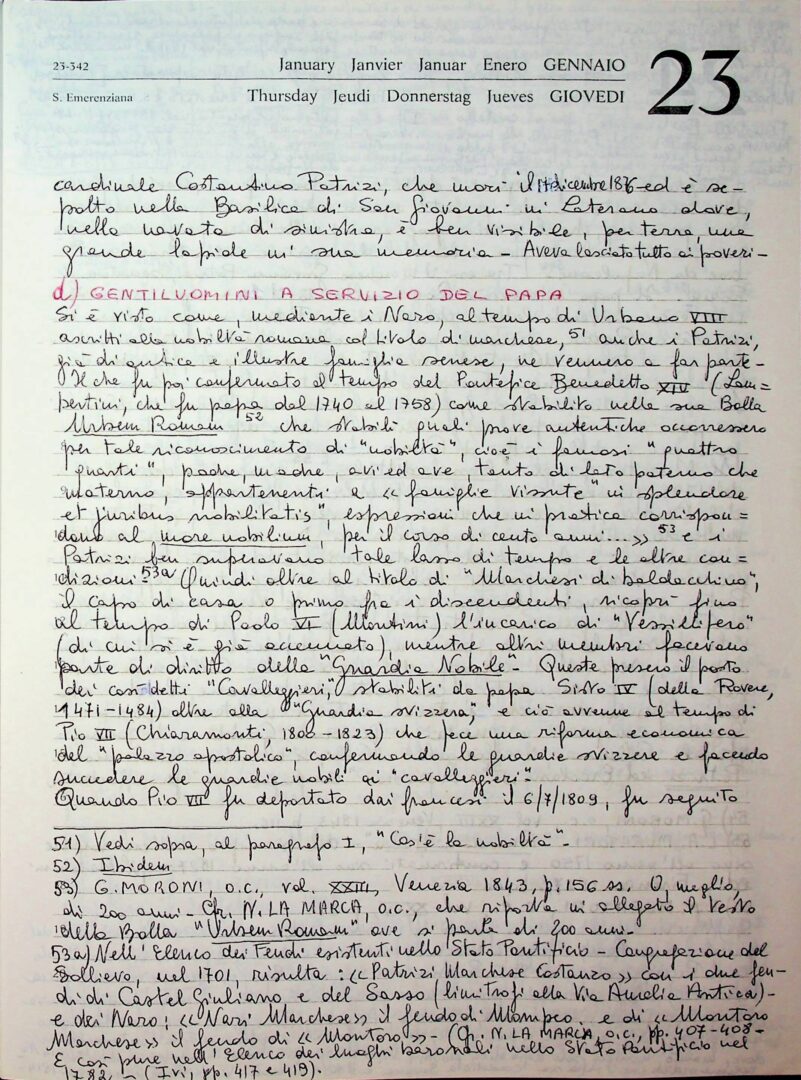 23-342
January Janvier Januar Enero GENNAIO
23
S. Emerenziana
Thursday Jeudi Donnerstag Jueves GIOVEDI
cardinale Costantino Patrizi, che morì il 17 dicembre 1876 ed è se-
polto nella Basilica di San Giovanni in Laterano dove,
nella navata di sinistra, è ben visibile, per terra, una
grande lapide in sua memoria - Aveva lasciato tutto ai poveri -
d) GENTILUOMINI A SERVIZIO DEL PAPA
Si è visto come, mediante i Naro, al tempo di Urbano VIII
ascritti alla nobiltà romana col titolo di marchese, 51 anche i Patrizi,
già di antica e illustre famiglia senese, ne vennero a far parte -
Il che fu poi confermato al tempo del Pontefice Benedetto XIV (Lam=
bertini, che fu papa dal 1740 al 1758) come stabilito nella sua Bolla
Urbem Romam 52 che stabilì quali prove autentiche occorressero
per tale riconoscimento di "nobiltà", cioè i famosi "quattro
quarti", padre, madre, avi ed ave, tanto di lato paterno che
materno, appartenenti a « famiglie vissute" in splendore
et juribus nobilitatis", espressioni che in pratica corrispon=
dono al more nobilium, per il corso di cento anni...» 53 e i
Patrizi ben superavano tale lasso di tempo e le altre con=
dizioni 53a (Quindi oltre al titolo di "Marchesi di baldacchino",
il capo di casa o primo fra i discendenti, ricoprì fino
al tempo di Paolo VI (Montini) l'incarico di "Vessillifero"
(di cui si è già accennato), mentre altri membri facevano
parte di diritto della "Guardia Nobile" - Queste presero il posto
dei così-detti "Cavalleggieri," stabiliti da papa Sisto IV (della Rovere,
1471-1484) oltre alla "Guardia svizzera," e ciò avvenne al tempo di
Pio VII (Chiaramonti, 1800-1823) che fece una riforma economica
del "palazzo apostolico", confermando le guardie svizzere e facendo
succedere le guardie nobili ai "cavalleggieri".
Quando Pio VII fu deportato dai francesi il 6/7/1809, fu seguito
51) Vedi sopra, al paragrafo I, "Cos'è la nobiltà" -
52) Ibidem
53) G. MORONI, o.c., vol. XXIII, Venezia 1843, p. 156 ss. O, meglio,
di 200 anni - Cfr. N. LA MARCA, o.c., che riporta in allegato il testo
della Bolla "Urbem Romam" ove si parla di 200 anni -
53a) Nell'Elenco dei Feudi esistenti nello Stato Pontificio - Congregazione del
Sollievo, nel 1701, risulta: « Patrizi Marchese Costanzo » con i due feu-
di di Castel Giuliano e del Sasso (limitrofi alla Via Aurelia Antica) -
e dei Naro: « Nari Marchese » il feudo di Mompeo, e di « Montoro
Marchese » il feudo di « Montoro » - (Cfr. N. LA MARCA, o.c., pp. 407-408 -
E così pure nell'Elenco dei luoghi baronali nello Stato Pontificio nel
1782 - (Ivi, pp. 417 e 419).